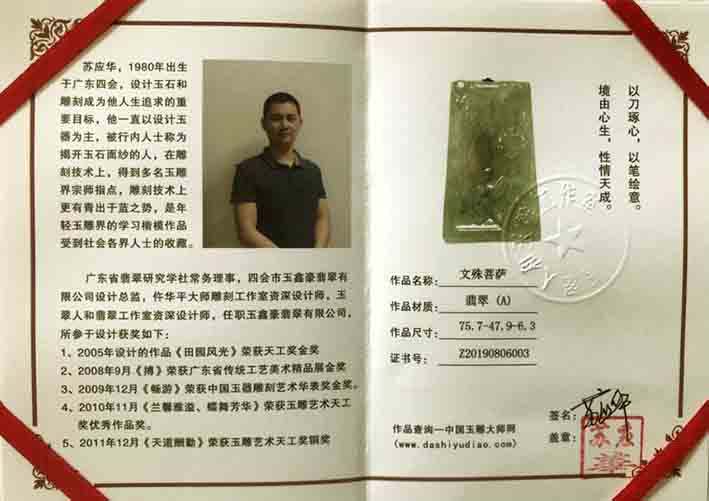 苏应华，1980年出生
于广东四会，设计玉石和
雕刻成为他人生追求的重
要目标，他一直以设计玉
器为主，被行内人士称为
揭开玉石面纱的人，在雕
刻技术上，得到多名玉雕
界宗师指点，雕刻技术上
更有青出于蓝之势，是年
轻玉雕界的学习楷模作品
受到社会各界人士的收藏。
广东省翡翠研究学社常务理事，四会市玉鑫豪翡翠有
限公司设计总监，仵华平大师雕刻工作室资深设计师，玉
翠人和翡翠工作室资深设计师，任职玉鑫豪翡翠有限公司，
所参于设计获奖如下：
1、2005年设计的作品《田园风光》荣获天工奖金奖
2、2008年9月《搏》荣获广东省传统工艺美术精品展金奖
3、2009年12月《畅游》荣获中国玉器雕刻艺术华表奖金奖。
4、2010年11月《兰馨雅溢、蝶舞芳华》荣获玉雕艺术天工
奖优秀作品奖。
5、2011年12月《天道酬勤》荣获玉雕艺术天工奖铜奖
以刀琢心，以笔绘意。
境由心生，性情天成。
作品名称：文殊菩萨
作品材质：翡翠（A）
作品尺寸：75.7-47.9-6.3
证书号：Z20190806003
签名：
盖章：
苏应华
作品查询—中国玉雕大师网
(www.dashiyudiao.com)